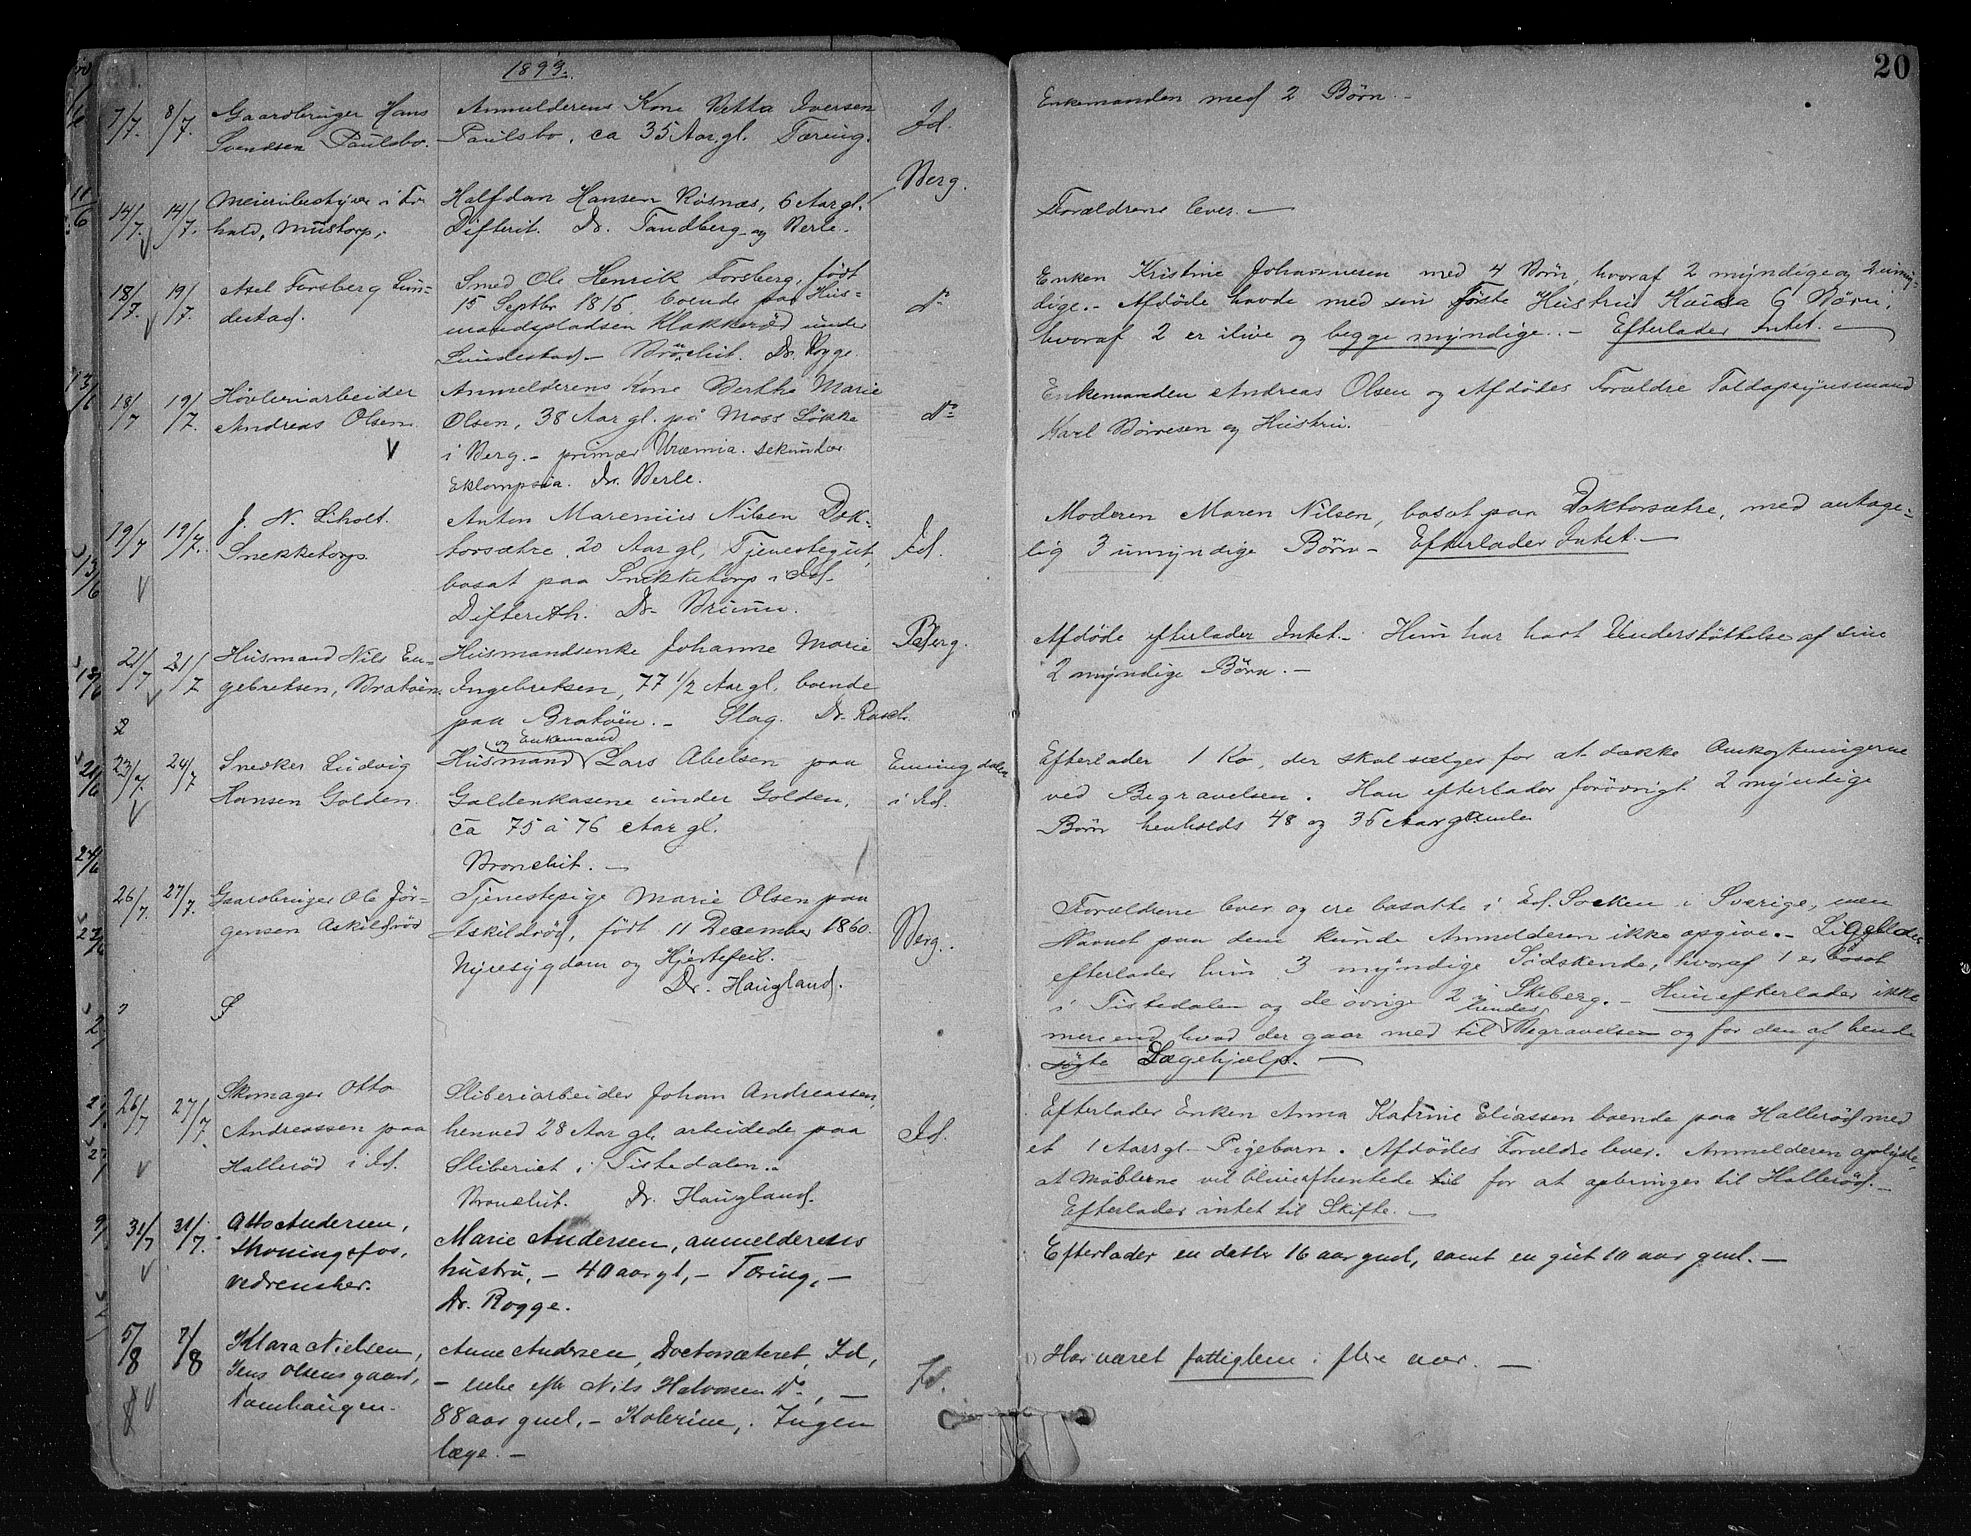 1893.
20
7/7. 8/7. Gaardbruger Hans
Svendsen Paulsbo.
Anmelderens Kone Betta Iversen
Paulsbo, ca 35 Aar gl. Tæring.
Id.
Enkemanden med 2 Børn. -
14/7. 14/7. Meieribestyrer i Fr
hald, Mustorp,
Halfdan Hansen Rösnæs, 6 Aar gl.
Difterit. Dr. Tandberg og Berle.
Berg.
Forældrene lever. -
18/7. 19/7. Axel Forsberg Lun-
destad.
Smed Ole Henrik Forsberg, født
15 Septbr 1816, boende paa Hus-
mandspladsen Klakkeröd under
Lundestad - Brönkit. Dr. Rogge.
do
Enken Kristine Johannesen med 4 Børn, hvoraf 2 myndige og 2 umyn-
dige. - Afdöde havde med sin Förste Hustru Kaisa 6 Børn,
hvoraf 2 er ilive og begge myndige. - Efterlader Intet. -
18/7 19/7. Høvleriarbeider
Andreas Olsen.
Anmelderens Kone Berthe Marie
Olsen, 38 Aar gl. på Moss Løkke
i Berg. - primær Uræmia. sekundær
Eklampsia. Dr. Berle.
do
Enkemanden Andreas Olsen og Afdödes Forældre Toldopsynsmand
Karl Børresen og Hustru.
19/7 19/7. J. N. Liholt.
Snekketorp.
Anton Marenius Nilsen Dok-
torsætre, 20 Aar gl, Tjenestegut,
bosat paa Snekketorp i Id.
Difterith. Dr. Bruun.
Id.
Moderen Maren Nilsen, bosat paa Doktorsætre, med antage-
lig 3 umyndige Børn - Efterlader Intet. -
21/7 21/7 Husmand Nils En-
gebretsen, Bratøen.
Husmandsenke Johanne Marie
Ingebretsen, 77 1/2 Aar gl. boende
paa Bratöen. - Slag. Dr. Rasch.
Berg.
Afdöde efterlader Intet. - Hun har havt Understöttelse af sine
2 myndige Børn. -
23/7. 24/7 Snedker Ludvig
Hansen Golden.
og Enkemand
Husmand Lars Abelsen paa
Goldenkasene under Golden,
ca 75 a 76 Aar gl.
Bronchit. -
Enningdalen
i Id.
Efterlader 1 Ko, der skal sælges for at dække Omkostningerne
ved Begravelsen. Han efterlader forövrigt 2 myndige
Børn henholds 48 og 36 Aar gamle
26/7. 27/7. Gaardbruger Ole Jör-
gensen Askildröd
Tjenestepige Marie Olsen paa
Askildröd, født 11 December 1860.
Nyresygdom og Hjertefeil.
Dr. Haugland.
Berg.
Forældrene lever og ere bosatte i Id Socken i Sverige, men
Navnet paa dem kunde Anmelderen ikke opgive. - Ligeledes
efterlader hun 3 myndige Södskende, hvoraf 1 er bosat
i Tistedalen og de övrige 2 i Skeberg. - Hun efterlader ikke
mere end hvad der gaar med til hendes Begravelse og for den af hende
søgte Lægehjælp. -
26/7 27/7. Skomager Otto
Andreassen paa
Halleröd i Id.
Sliberiarbeider Johan Andreassen,
henved 28 Aar gl. arbeidede paa
Sliberiet i Tistedalen.
Bronchit. Dr. Haugland.
Id.
Efterlader Enken Anna Katrine Eliassen boende paa Halleröd med
et 1 Aars gl. Pigebarn. Afdödes Forældre lever. Anmelderen oplyste,
at Möblerne vil blive afhentede for at opbringes til Halleröd. -
Efterlader intet til Skifte. -
31/7 31/7. Otto Andersen,
Skoningsfos,
vedrensker.
Marie Andersen, anmelderens
hustru, - 40 aar gl, - Tæring, -
Dr. Rogge.
Efterlader en datter 16 aar gml, samt en gut 10 aar gml. -
5/8 7/8 Klara Nielsen,
Jens Olsens gaard,
Damhaugen.
Anne Andersen, Doctorsæteret, Id,
- enke efter Nils Halvorsen do, -
88 aar gml, - Kolerine, Ingen
læge. -
Id.
Har været fattiglem i flere aar. -